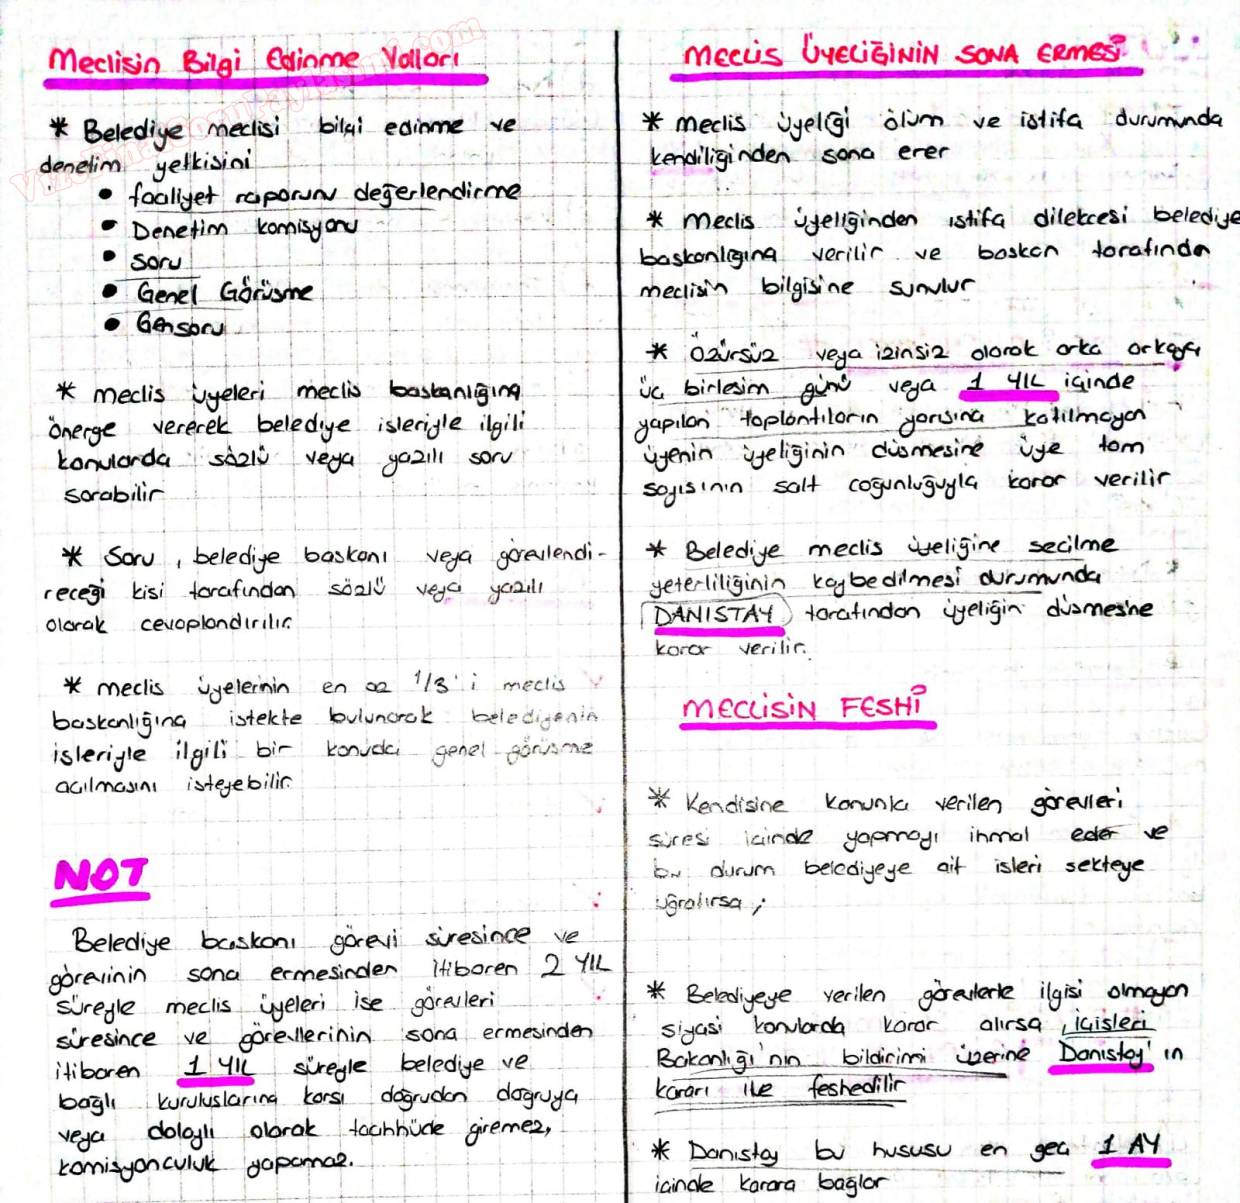 Meclisin Bilgi Edinme Yolları
* Belediye meclisi bilgi edinme ve
denetim yetkisini
• faaliyet raporunu değerlendirme
• Denetim komisyonu
• soru
• Genel Görüşme
• Gensoru
* meclis üyeleri meclis başkanlığına
önerge vererek belediye işleriyle ilgili
konularda sözlü veya yazılı soru
sorabilir
* Soru, belediye başkanı veya görevlendi-
receği kişi tarafından sözlü veya yazılı
olarak cevaplandırılır.
* meclis üyelerinin en az 1/3'i meclis
başkanlığına istekte bulunarak belediyenin
işleriyle ilgili bir konuda genel görüşme
açılmasını isteyebilir.
NOT
Belediye başkanı görevi süresince ve
görevinin sona ermesinden itibaren 2 YIL
süreyle meclis üyeleri ise görevleri
süresince ve görevlerinin sona ermesinden
itibaren 1 YIL süreyle belediye ve
bağlı kuruluşlarına karşı doğrudan doğruya
veya dolaylı olarak taahhüde giremez,
komisyonculuk yapamaz.
MECLİS ÜYELİĞİNİN SONA ERMESİ
* meclis üyeliği ölüm ve istifa durumunda
kendiliğinden sona erer
* Meclis üyeliğinden istifa dilekçesi belediye
başkanlığına verilir ve başkan tarafında
meclisin bilgisine sunulur
* Özürsüz veya izinsiz olarak arka arkaya
üç birleşim günü veya 1 YIL içinde
yapılan toplantıların yarısına katılmayan
üyenin üyeliğinin düşmesine üye tam
sayısının salt çoğunluğuyla karar verilir
* Belediye meclis üyeliğine seçilme
yeterliliğinin kaybedilmesi durumunda
DANIŞTAY tarafından üyeliğin düşmesine
karar verilir.
MECLİSİN FESHİ
* Kendisine kanunla verilen görevleri
süresi içinde yapmayı ihmal eder ve
bu durum belediyeye ait işleri sekteye
uğratırsa;
* Belediyeye verilen görevlerle ilgisi olmayan
siyasi konularda karar alırsa, İçişleri
Bakanlığı'nın bildirimi üzerine Danıştay'ın
kararı ile feshedilir
* Danıştay bu hususu en geç 1 AY
içinde karara bağlar